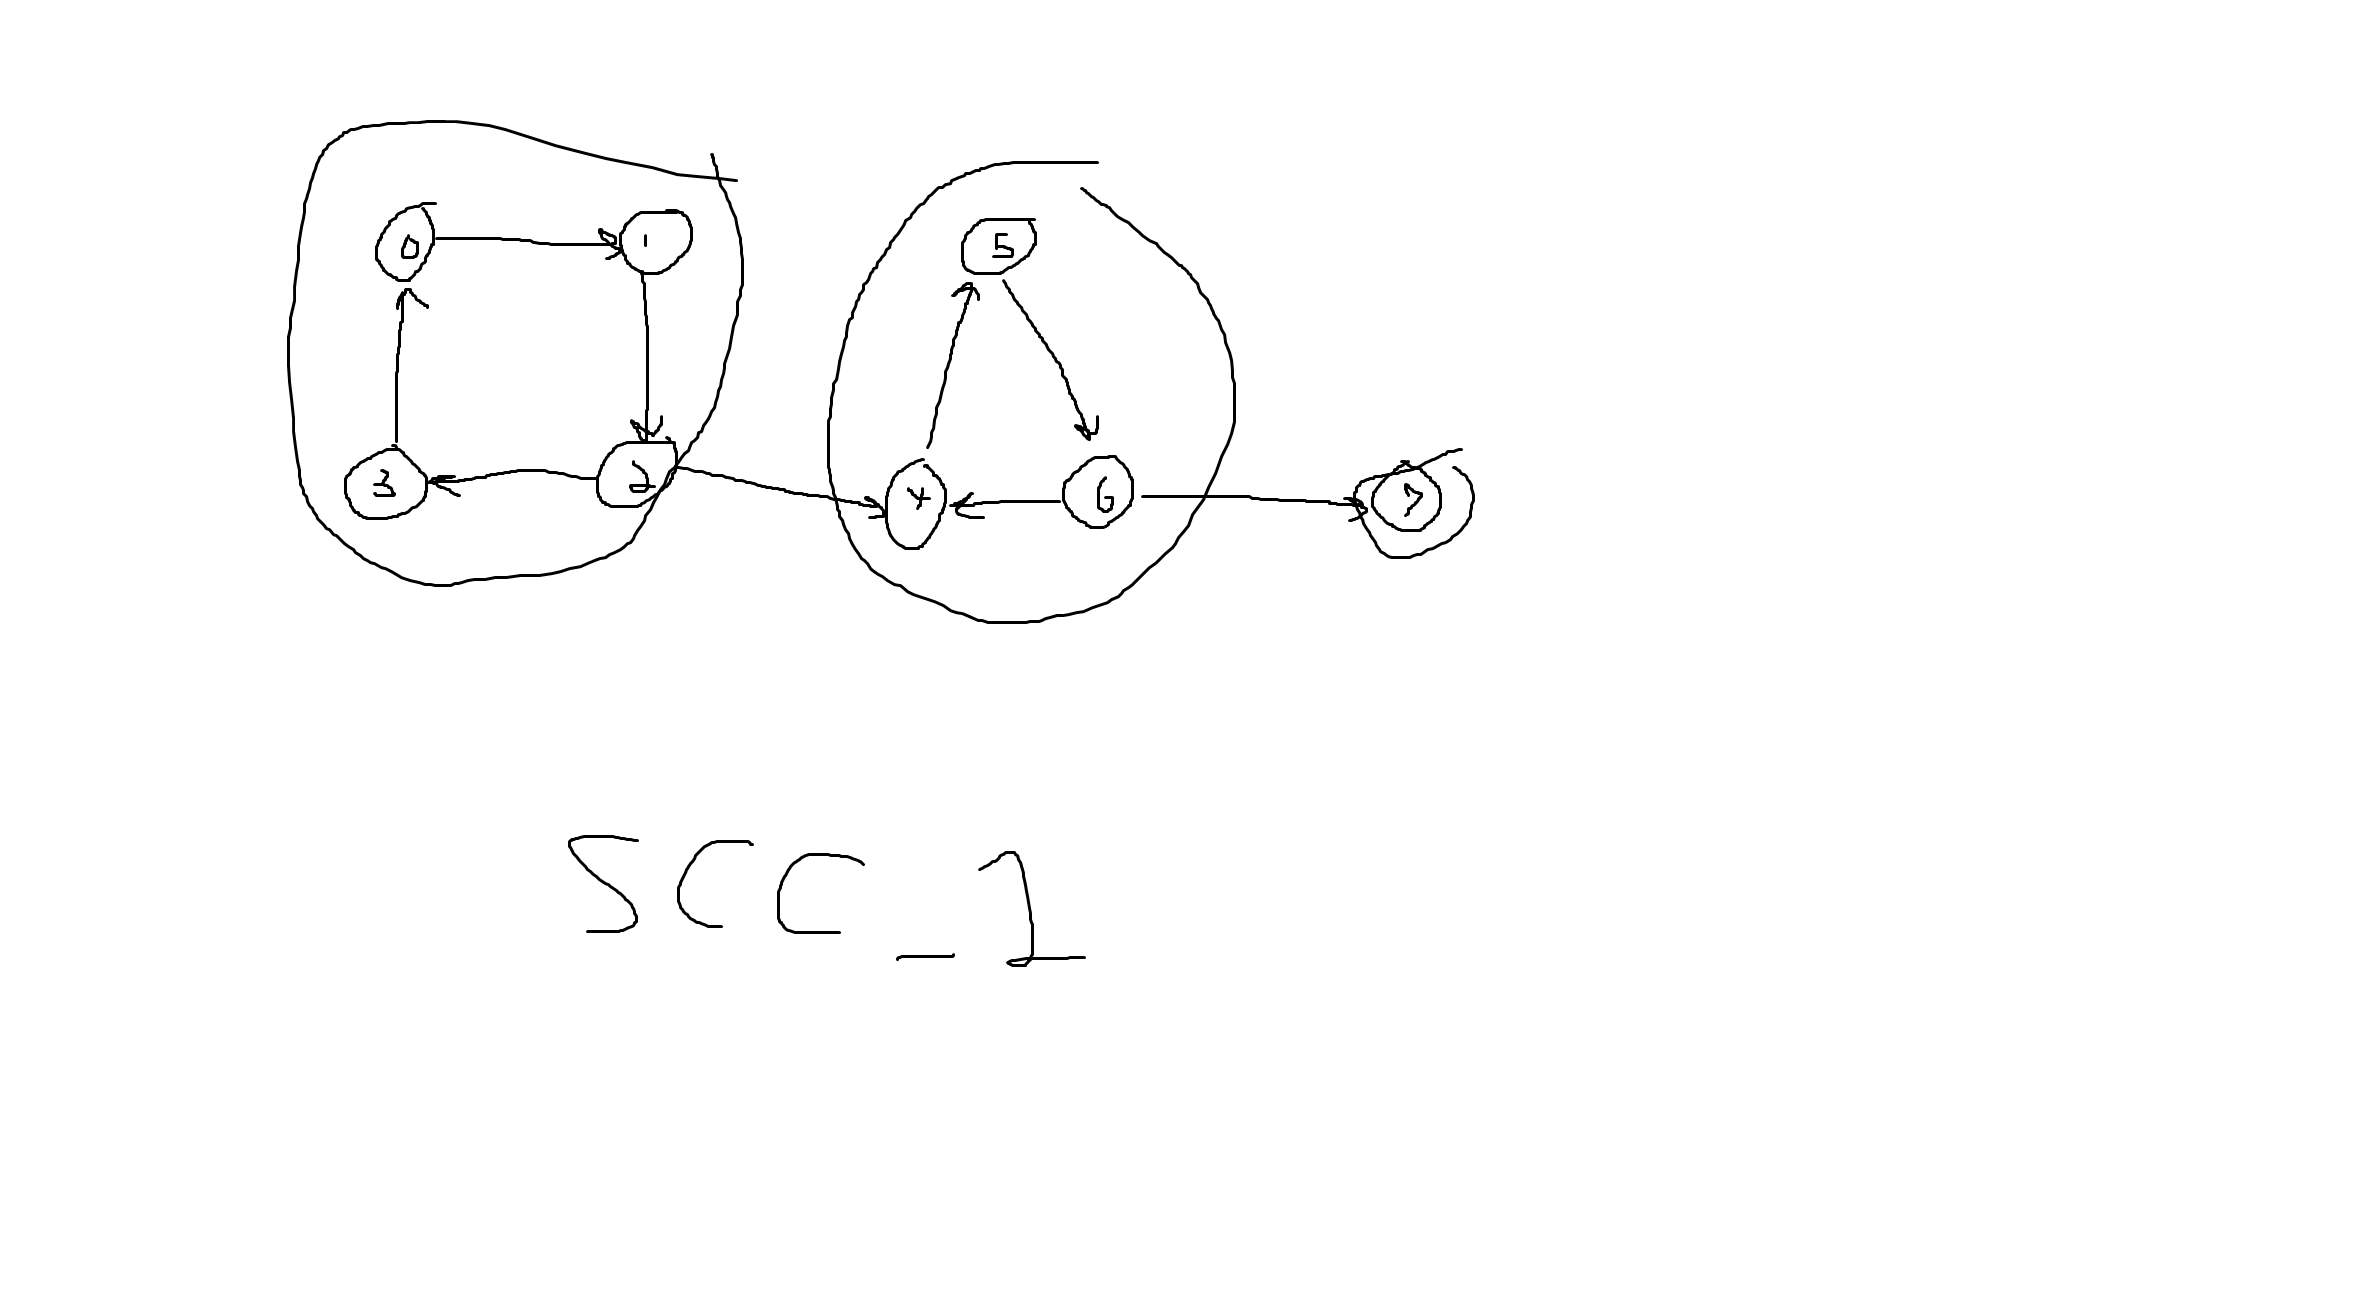 0 1 5
3 2 4 6 7
SCC_1